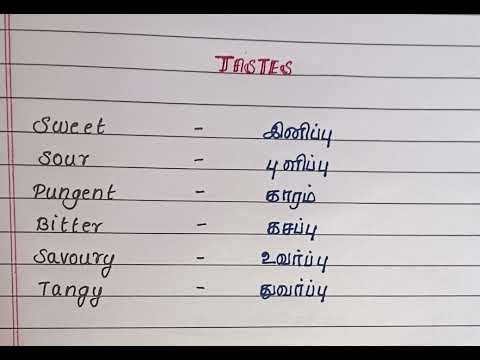 TASTES
Sweet - இனிப்பு
Sour - புளிப்பு
Pungent - காரம்
Bitter - கசப்பு
Savoury - உவர்ப்பு
Tangy - துவர்ப்பு